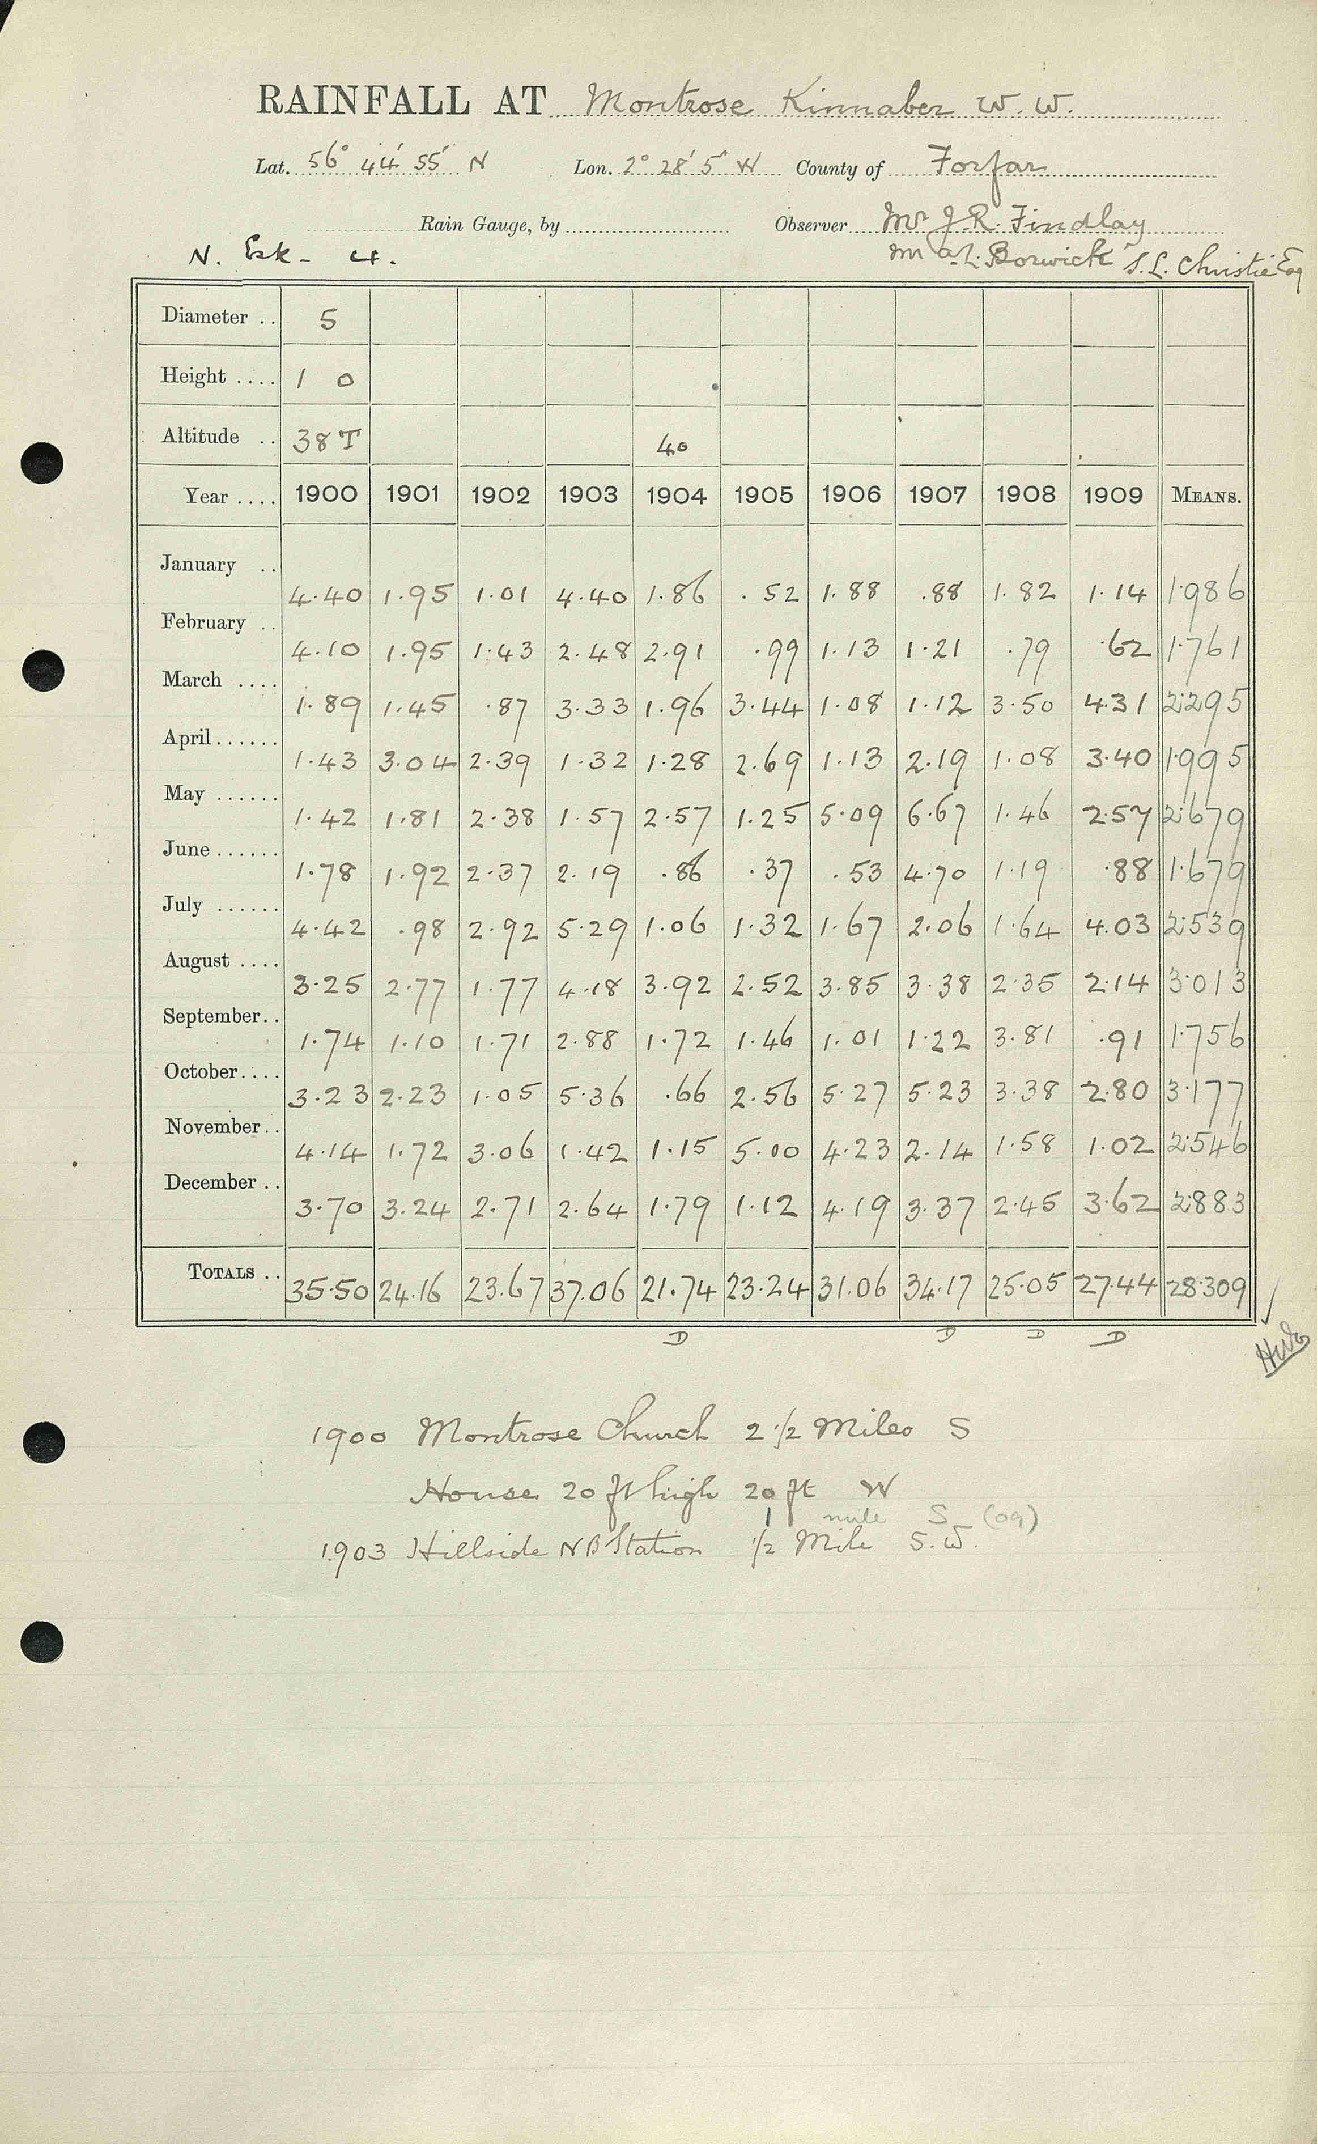 RAINFALL AT Montrose Kinnaber W. W.
Lat. 56° 44' 55" N Lon. 2° 28' 5" W County of Forfar
Rain Gauge, by Observer Mr J. R. Findlay
N. Esk - 4. Mr A. L. Borwick S. L. Christie Esq
Diameter .. 5
Height .... 1 0
Altitude .. 38 T 40
Year .... 1900 1901 1902 1903 1904 1905 1906 1907 1908 1909 MEANS.
January .. 4.40 1.95 1.01 4.40 1.86 .52 1.88 .88 1.82 1.14 1.986
February .. 4.10 1.95 1.43 2.48 2.91 .99 1.13 1.21 .79 .62 1.761
March .... 1.89 1.45 .87 3.33 1.96 3.44 1.08 1.12 3.50 4.31 2.295
April ...... 1.43 3.04 2.39 1.32 1.28 2.69 1.13 2.19 1.08 3.40 1.995
May ...... 1.42 1.81 2.38 1.57 2.57 1.25 5.09 6.67 1.46 2.57 2.679
June ...... 1.78 1.92 2.37 2.19 .86 .37 .53 4.70 1.19 .88 1.679
July ...... 4.42 .98 2.92 5.29 1.06 1.32 1.67 2.06 1.64 4.03 2.539
August .... 3.25 2.77 1.77 4.18 3.92 2.52 3.85 3.38 2.35 2.14 3.013
September .. 1.74 1.10 1.71 2.88 1.72 1.46 1.01 1.22 3.81 .91 1.756
October .... 3.23 2.23 1.05 5.36 .66 2.56 5.27 5.23 3.38 2.80 3.177
November .. 4.14 1.72 3.06 1.42 1.15 5.00 4.23 2.14 1.58 1.02 2.546
December .. 3.70 3.24 2.71 2.64 1.79 1.12 4.19 3.37 2.45 3.62 2.883
TOTALS .. 35.50 24.16 23.67 37.06 21.74 23.24 31.06 34.17 25.05 27.44 28.309
D D D D
1900 Montrose Church 2 1/2 Miles S
House 20 ft high 20 ft W
1 mile S (09)
1903 Hillside NB Station 1/2 Mile S.W.